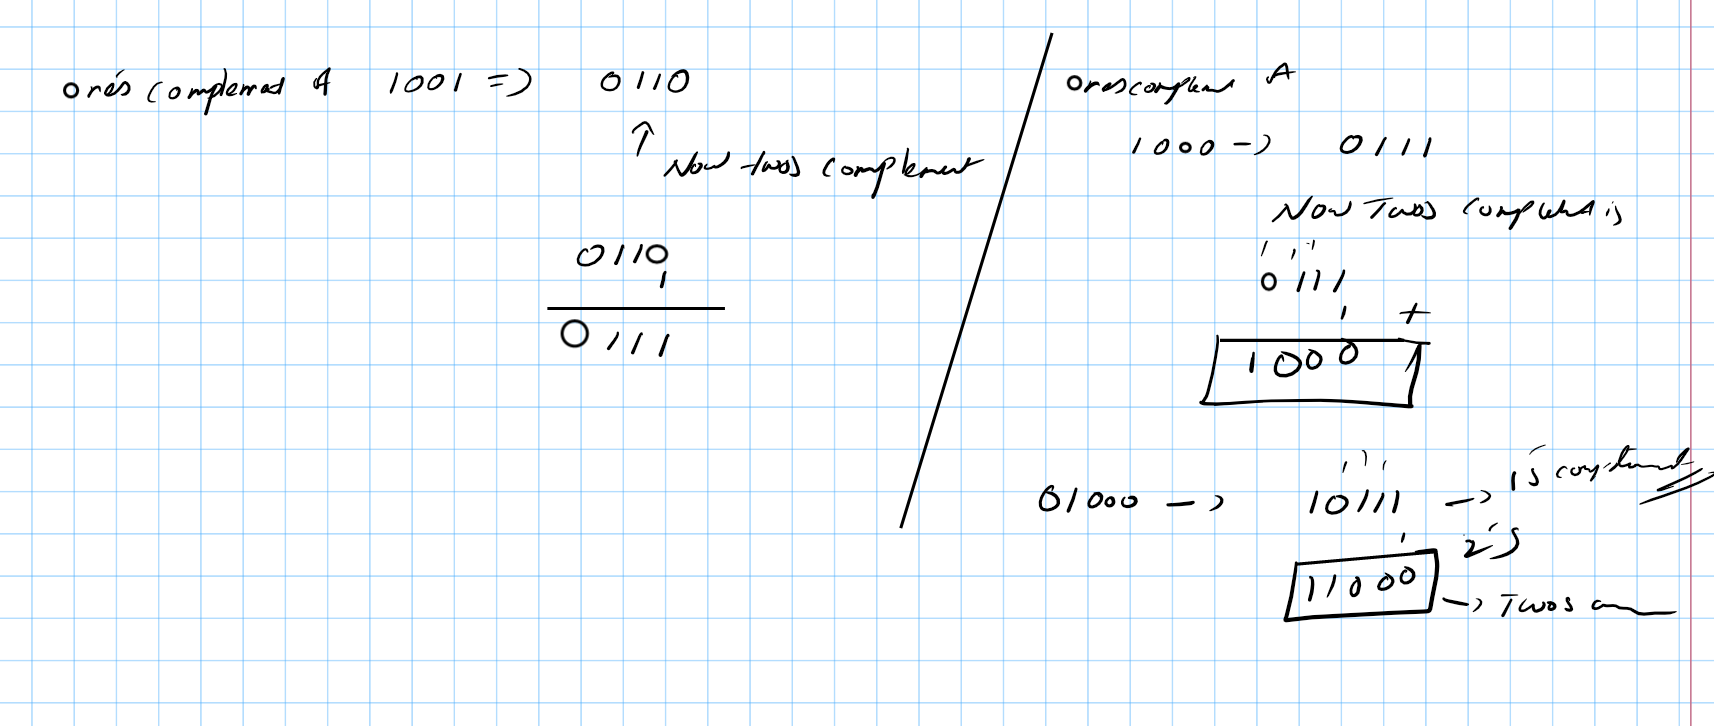 one's complement of 1001 => 0110
↑ Now twos complement
0110
1
0111
ones complement of
1000 -> 0111
Now Twos complement is
1 1 1
0111
1 +
1000
1 1 1
01000 -> 10111 -> 1's complement
1 2's
11000 -> Twos